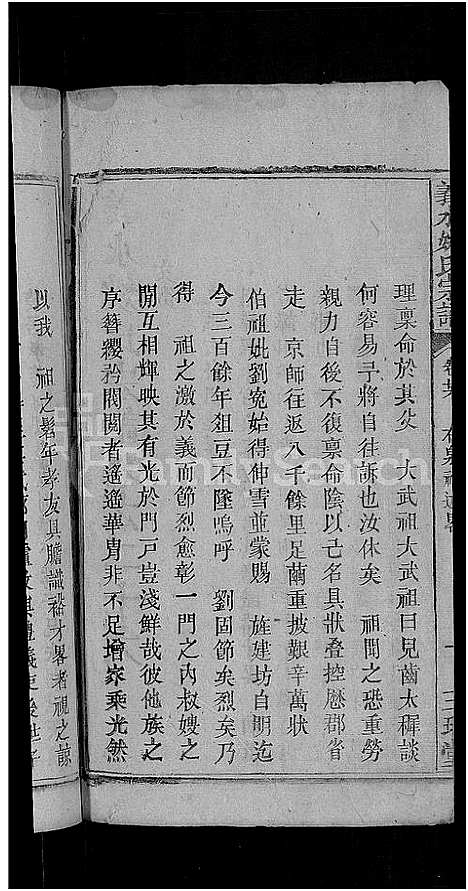 理稟命於其父 大武祖大武祖曰兒齒太穉談
何容易予將自往訴也汝休矣 祖聞之恐重勞
親力自後不復稟命陰以己名具狀叠控歷郡省
走 京師往返八千餘里足繭重披艱辛萬狀
伯祖妣劉寃始得伸雪並蒙賜 旌建坊自明迄
今三百餘年俎豆不墜嗚呼 劉固節矣烈矣乃
得 祖之激於義而節烈愈彰一門之內叔嫂之
間互相輝映其有光於門戸豈淺鮮哉彼他族之
序簪纓矜閥閱者遙遙華胄非不足增家乘光然
以我 祖之髫年孝友具膽識裕才畧者視之諒
氏宗譜